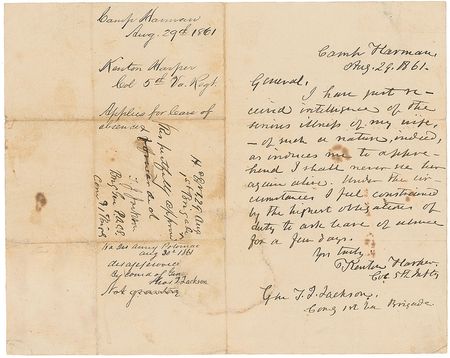 Camp Harman
Aug. 29th 1861
Kenton Harper
Col 5th Va. Regt
Applies for leave of
absence
Respectfully
T. J. Jackson
Hd Qrs Army Potomac
Aug 30th 1861
disapproved
By comd of Gen
Thos Jordan
Not granted
Camp Harman,
Aug. 29. 1861.
General,
I have just re-
ceived intelligence of the
serious illness of my wife,
- of such a nature, indeed,
as induces me to appre-
hend I shall never see her
again alive. Under the cir
cumstances I feel constrained
by the highest obligations of
duty to ask leave of absence
for a few days.
Yrs truly
Kenton Harper
Col 5th Inf Va
Gen T. J. Jackson,
Comg 1st Va Brigade